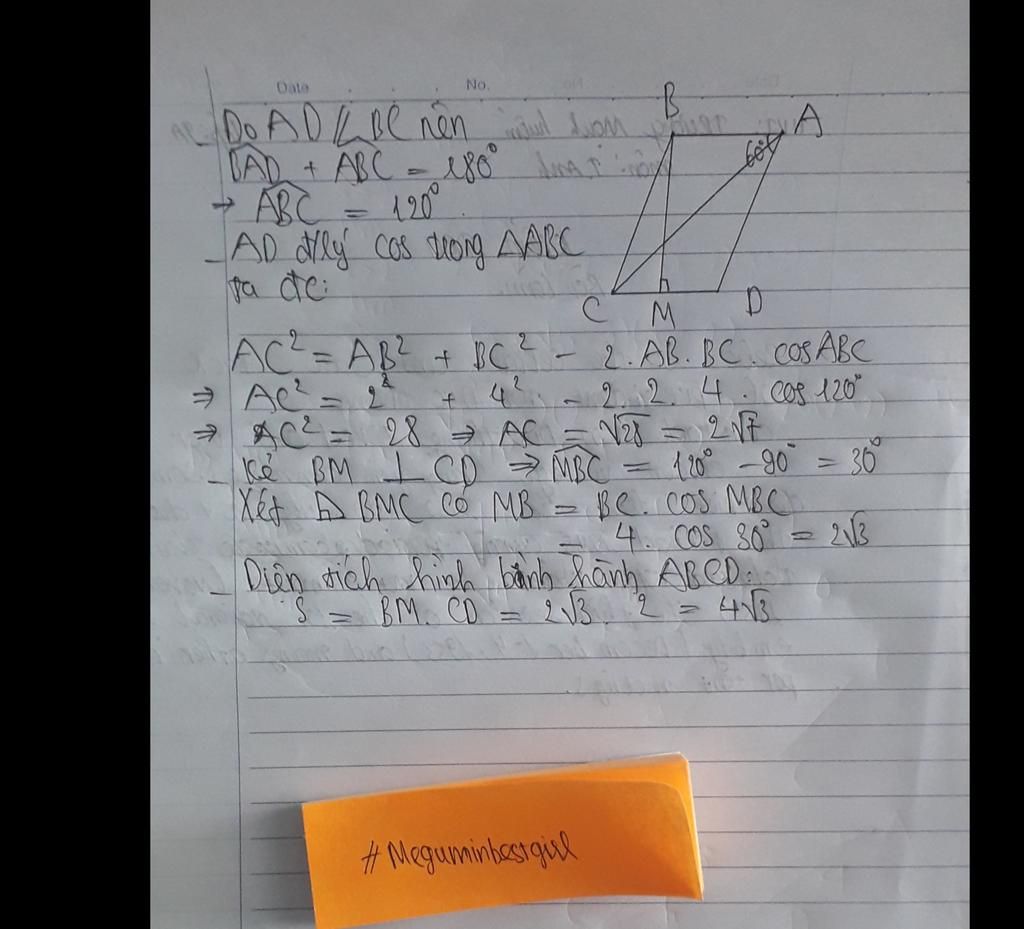 Date No.
_ Do AD // BC nên
BAD + ABC = 180°
→ ABC = 120°.
_ AD đ/lý cos trong ΔABC
ta đc:
B
A
60°
C M D
AC² = AB² + BC² - 2. AB. BC. cosABC
⇒ AC² = 2² + 4² - 2.2. 4. cos 120°
⇒ AC² = 28 ⇒ AC = √28 = 2√7
_ Kẻ BM ⊥ CD ⇒ MBC = 120° - 90° = 30°
Xét ⊿ BMC có MB = BC. cos MBC
= 4. cos 30° = 2√3
_ Diện tích hình bình hành ABCD:
S = BM. CD = 2√3. 2 = 4√3
#Meguminbestgirl